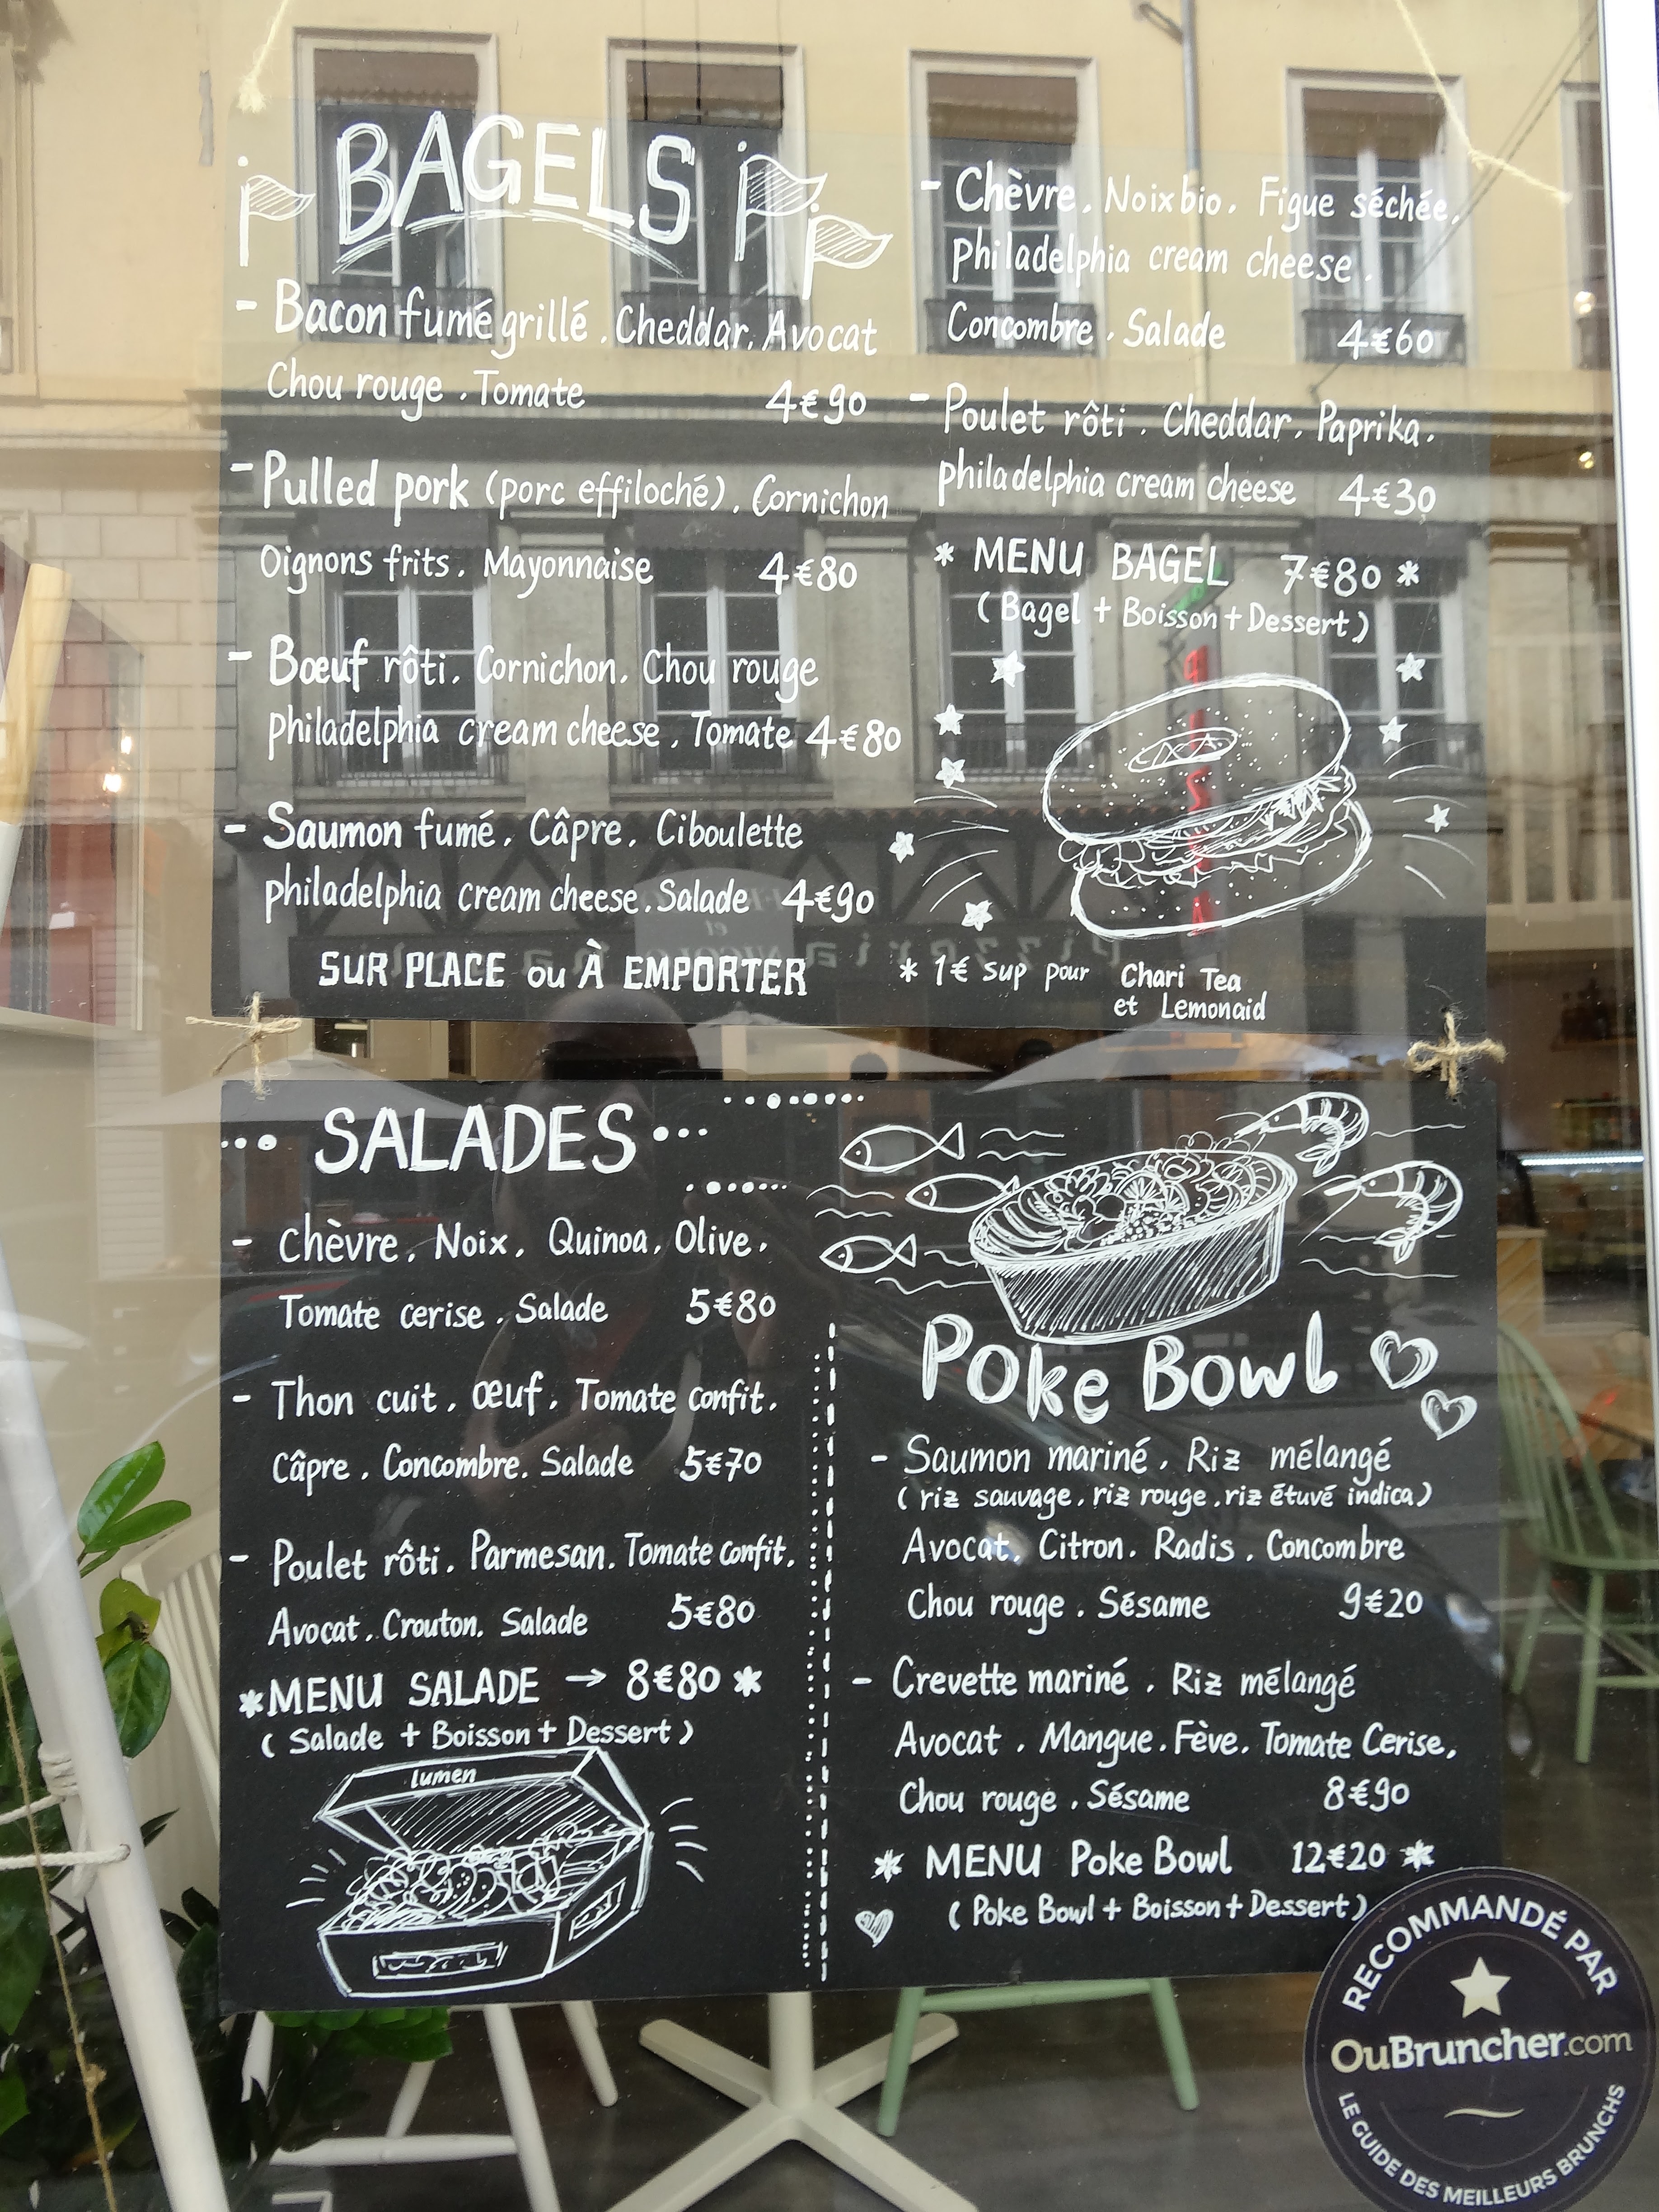 BAGELS
- Bacon fumé grillé . Cheddar. Avocat
Chou rouge . Tomate 4€90
- Pulled pork (porc effiloché) . Cornichon
Oignons frits . Mayonnaise 4€80
- Bœuf rôti. Cornichon. Chou rouge
philadelphia cream cheese . Tomate 4€80
- Saumon fumé . Câpre . Ciboulette
philadelphia cream cheese . Salade 4€90
SUR PLACE ou À EMPORTER
- Chèvre . Noix bio . Figue séchée.
philadelphia cream cheese .
Concombre . Salade 4€60
- Poulet rôti . Cheddar . Paprika.
philadelphia cream cheese 4€30
* MENU BAGEL 7€80 *
( Bagel + Boisson + Dessert )
* 1€ sup pour Chari Tea
et Lemonaid
SALADES
- chèvre . Noix . Quinoa . Olive .
Tomate cerise . Salade 5€80
- Thon cuit . œuf . Tomate confit.
câpre . Concombre. Salade 5€70
- Poulet rôti . Parmesan. Tomate confit.
Avocat . Crouton. Salade 5€80
*MENU SALADE → 8€80 *
( Salade + Boisson + Dessert )
lumen
Poke Bowl
- Saumon mariné . Riz mélangé
( riz sauvage . riz rouge . riz étuvé indica )
Avocat. Citron. Radis . Concombre
Chou rouge . Sésame 9€20
- Crevette mariné . Riz mélangé
Avocat . Mangue . Fève. Tomate Cerise.
Chou rouge . Sésame 8€90
* MENU Poke Bowl 12€20 *
( Poke Bowl + Boisson + Dessert )
RECOMMANDÉ PAR
OuBruncher.com
LE GUIDE DES MEILLEURS BRUNCHS